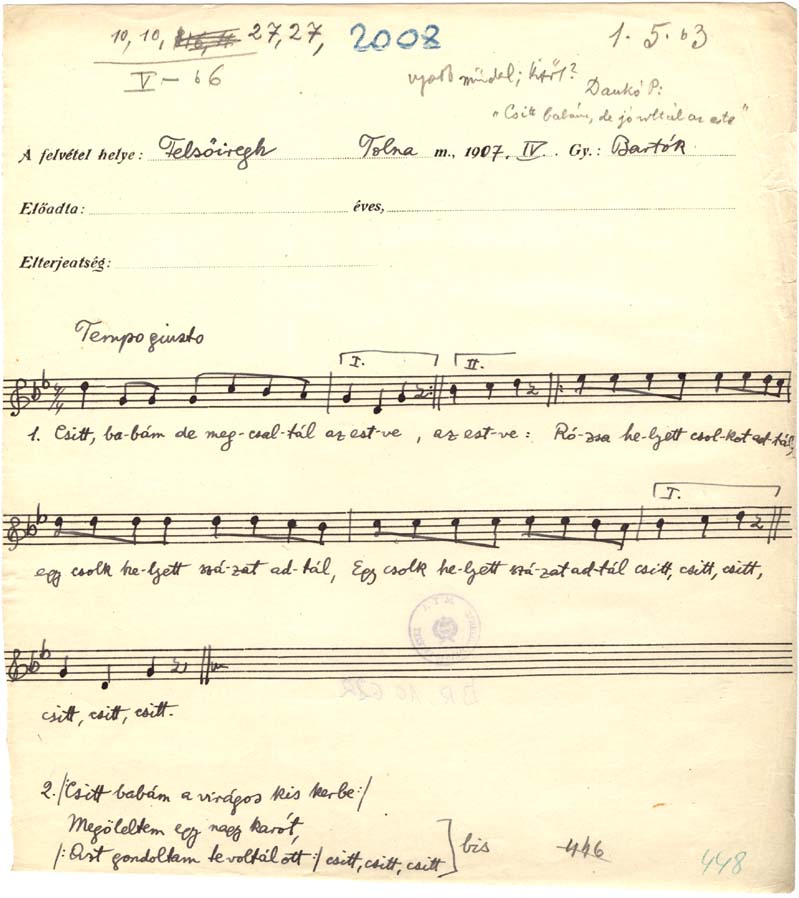 10, 10, 27, 27, 2008 1. 5. 63
V — 66
újabb műdal; kitől? Dankó P:
"Csitt babám, de jó voltál az este"
A felvétel helye: Felsőiregh Tolna m., 1907. IV. Gy.: Bartók
Előadta: éves,
Elterjeatség:
Tempo giusto
I. II.
1. Csitt, ba-bám de meg-csal-tál az est-ve, az est-ve: Ró-zsa he-lyett csol-kot ad-tál,
I.
egy csolk he-lyett szá-zat ad-tál, Egy csolk he-lyett szá-zat ad-tál csitt, csitt, csitt,
csitt, csitt, csitt.
2. /:Csitt babám a virágos kis kerbe:/
Megöleltem egy nagy karót,
/:Azt gondoltam te voltál ott:/ csitt, csitt, csitt bis 446
448